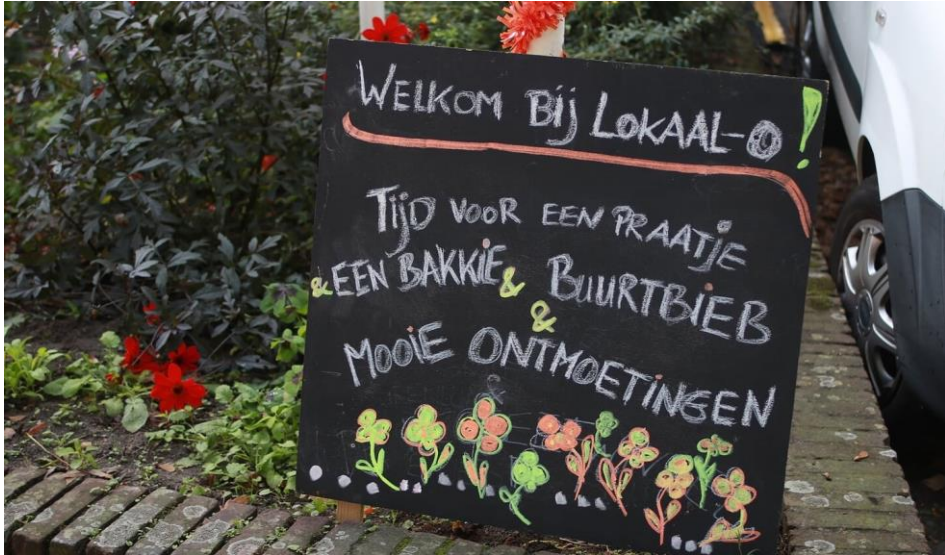 WELKOM Bij LOKAAL-O!
TijD VOOR EEN PRAATjE
& EEN BAKKiE & BUURTBiEB
&
MOOiE ONTMOETiNGEN